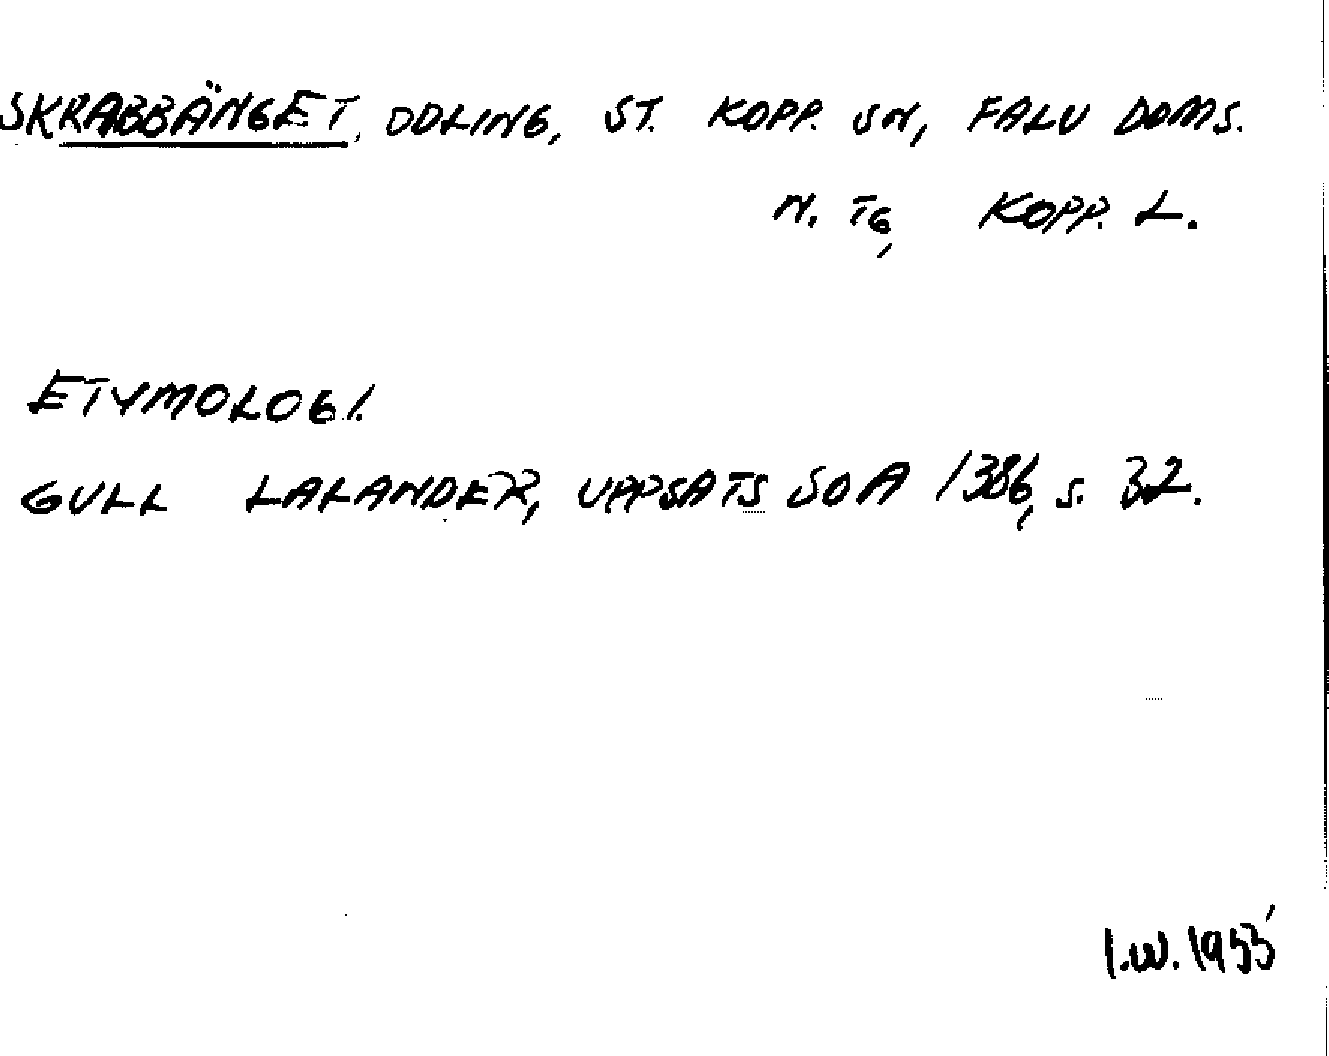 SKRABBÄNGET, ODLING, ST. KOPP. SN, FALU DOMS.
N. TG, KOPP. L.
ETYMOLOGI.
GULL LALANDER, UPPSATS SOA 1386, S. 32.
I.W. 1953